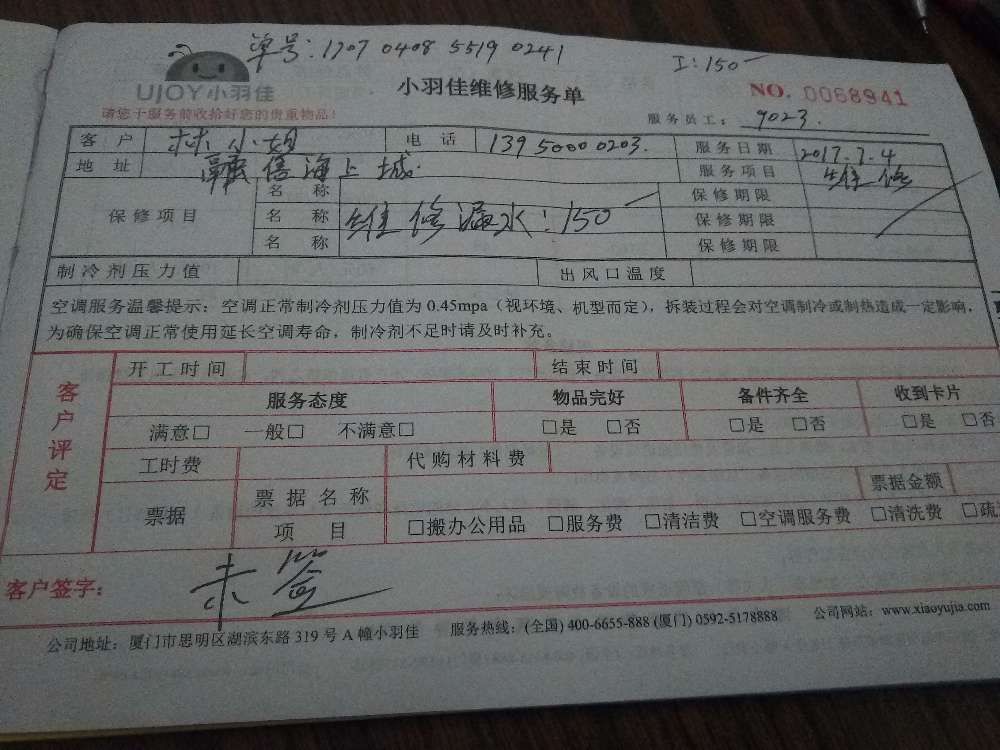 单号：1707 0408 5519 0241
工：150
UJOY小羽佳
小羽佳维修服务单
NO. 0068941
请您于服务前收拾好您的贵重物品！
服务员工：9023.
客户 林小姐 电话 13950000203. 服务日期 2017.7.4
地址 融信海上城. 服务项目 维修
保修项目 名称 保修期限
名称 维修漏水：150 保修期限
名称 保修期限
制冷剂压力值 出风口温度
空调服务温馨提示：空调正常制冷剂压力值为 0.45mpa（视环境、机型而定），拆装过程会对空调制冷或制热造成一定影响，
为确保空调正常使用延长空调寿命，制冷剂不足时请及时补充。
客户评定
开工时间 结束时间
服务态度 物品完好 备件齐全 收到卡片
满意□ 一般□ 不满意□ □是 □否 □是 □否 □是 □否
工时费 代购材料费
票据 票据名称 票据金额
项目 □搬办公用品 □服务费 □清洁费 □空调服务费 □清洗费 □疏
客户签字： 未签
公司地址：厦门市思明区湖滨东路 319 号 A 幢小羽佳 服务热线：(全国) 400-6655-888 (厦门) 0592-5178888 公司网站：www.xiaoyujia.com